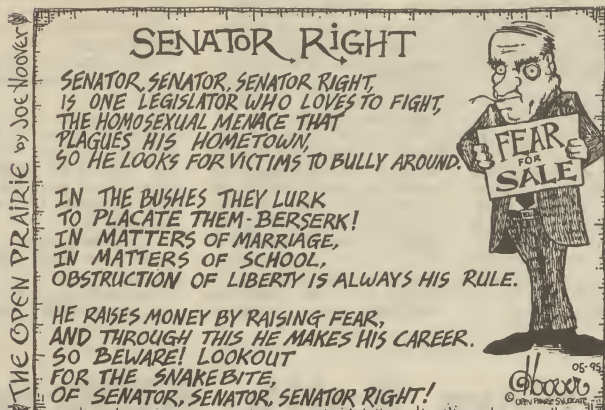 THE OPEN PRAIRIE by JOE HOOVER
SENATOR RIGHT
SENATOR, SENATOR, SENATOR RIGHT,
IS ONE LEGISLATOR WHO LOVES TO FIGHT,
THE HOMOSEXUAL MENACE THAT
PLAGUES HIS HOMETOWN,
SO HE LOOKS FOR VICTIMS TO BULLY AROUND.
IN THE BUSHES THEY LURK
TO PLACATE THEM-BERSERK!
IN MATTERS OF MARRIAGE,
IN MATTERS OF SCHOOL,
OBSTRUCTION OF LIBERTY IS ALWAYS HIS RULE.
HE RAISES MONEY BY RAISING FEAR,
AND THROUGH THIS HE MAKES HIS CAREER.
SO BEWARE! LOOKOUT
FOR THE SNAKEBITE,
OF SENATOR, SENATOR, SENATOR RIGHT!
FEAR
FOR
SALE
05-95
Hoover
© OPEN PRAIRIE SYNDICATE